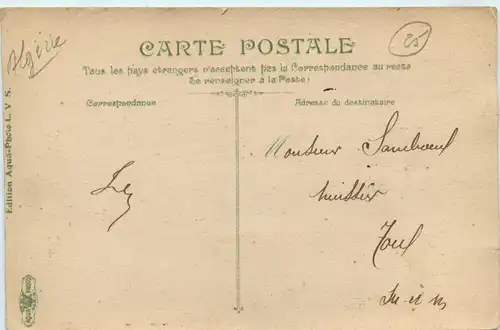 Algérie
25
CARTE POSTALE
Tous les pays étrangers n'acceptent pas la Correspondance au recto
Se renseigner à la Poste)
Correspondance
Adresse du destinataire
Edition Aqua-Photo L. V. S.
Monsieur Sambœuf
huissier
Toul
M et M